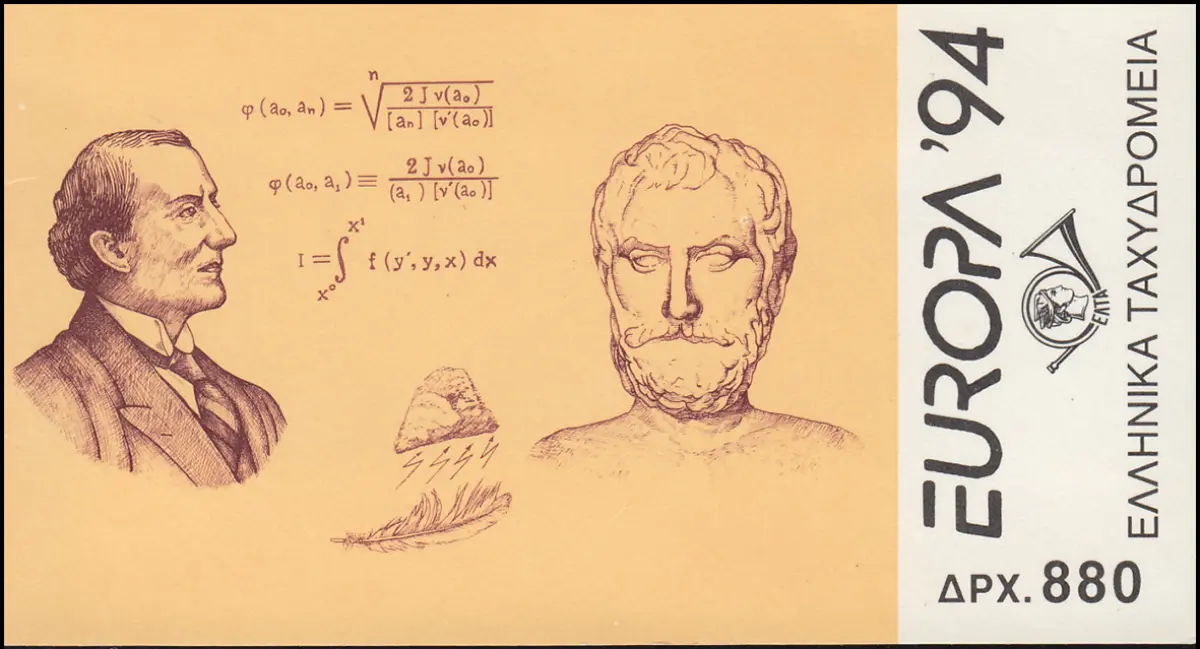 φ (a₀, aₙ) = ⁿ√(2 J v(a₀) / [aₙ] [v′(a₀)])
φ(a₀, a₁) ≡ 2 J v(a₀) / (a₁) [v′(a₀)]
I = ∫ₓ₀ˣ¹ f (y′, y, x) dx
EUROPA '94
ΕΛΤΑ
ΕΛΛΗΝΙΚΑ ΤΑΧΥΔΡΟΜΕΙΑ
ΔΡΧ. 880